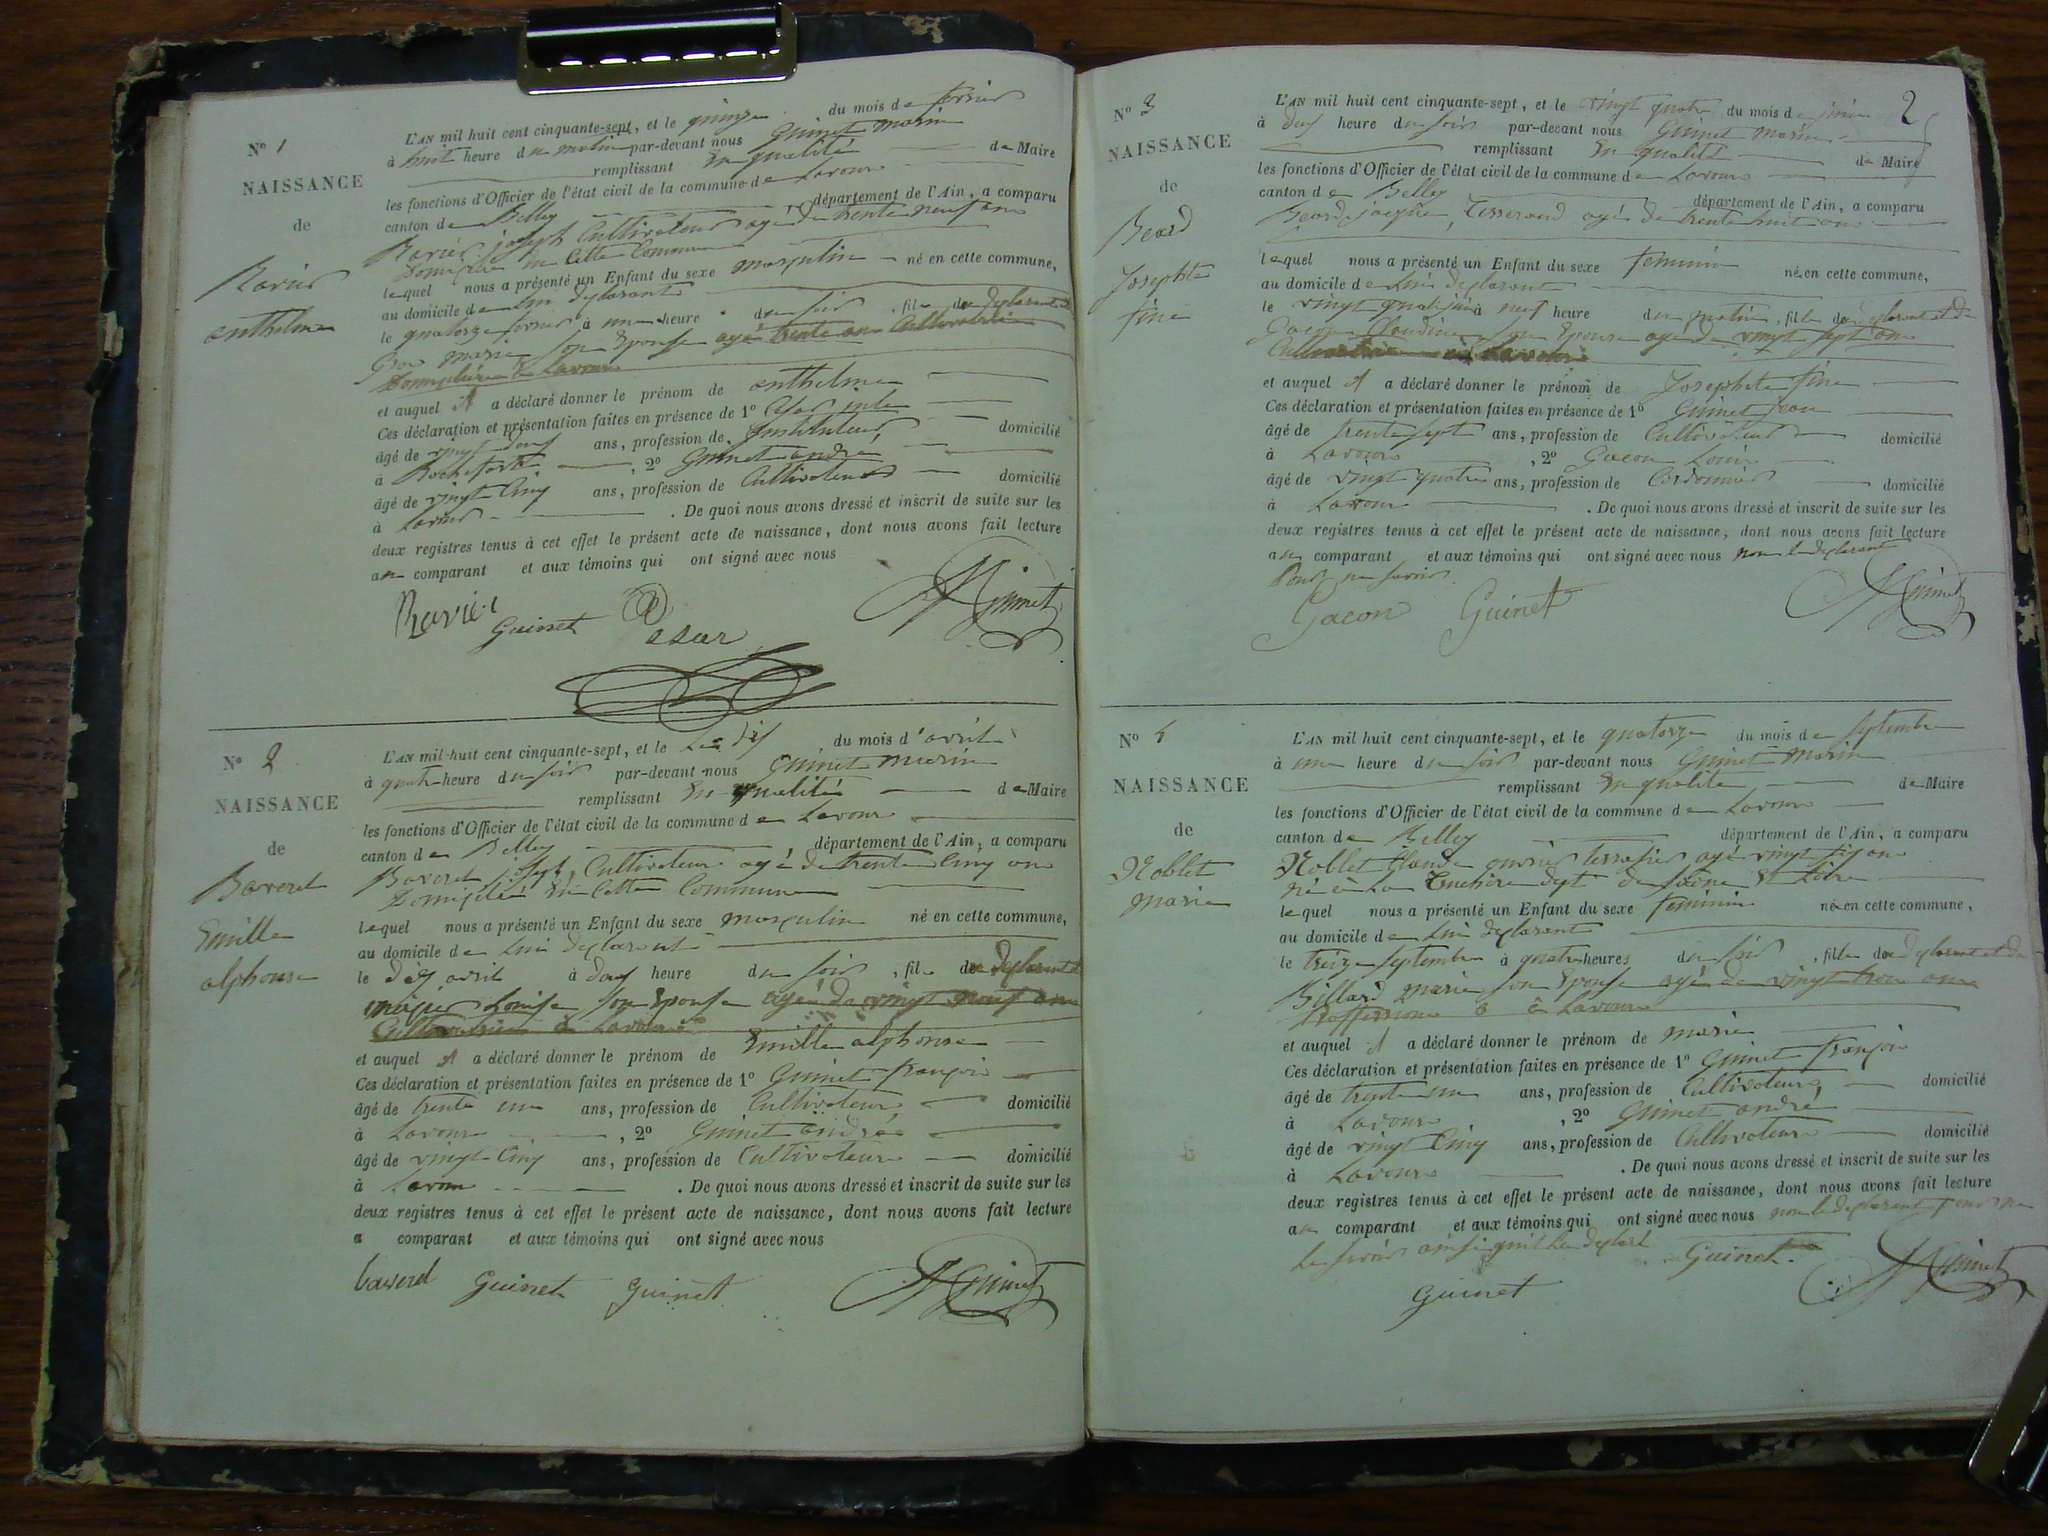 N° 1
NAISSANCE
de
Ravier
anthelme
L'AN mil huit cent cinquante-sept, et le quinze du mois de fevrier
à huit heure du matin par-devant nous Guinet marin
remplissant En qualité de Maire
les fonctions d'Officier de l'état civil de la commune de Lavour
canton de Belley département de l'Ain, a comparu
Ravier joseph Cultivateur agé de trente neuf ans
Domicilié en Cette Commune
lequel nous a présenté un Enfant du sexe masqulin né en cette commune,
au domicile de lui deplarant
le quatorze fevrier à une heure du soir, fils de deplarant et
marie son Epouse agé trente ans Cultivatrice
Domiciliée à Lavour
et auquel il a déclaré donner le prénom de anthelme
Ces déclaration et présentation faites en présence de 1°
âgé de vingt ans, profession de Instituteur, domicilié
à Rochefort, 2° Guinet andré
âgé de vingt Cinq ans, profession de Cultivateur domicilié
à Lavour. De quoi nous avons dressé et inscrit de suite sur les
deux registres tenus à cet effet le présent acte de naissance, dont nous avons fait lecture
au comparant et aux témoins qui ont signé avec nous
Ravier Guinet MGuinet
N° 2
NAISSANCE
de
Baverel
Emille
alphonse
L'AN mil huit cent cinquante-sept, et le Le dix du mois d'avril
à quatre heure du soir par-devant nous Guinet marin
remplissant En qualité de Maire
les fonctions d'Officier de l'état civil de la commune de Lavour
canton de Belley, département de l'Ain, a comparu
Baverel josept, Cultivateur agé de trente Cinq ans
Domicilié En Cette Commune
lequel nous a présenté un Enfant du sexe masqulin né en cette commune,
au domicile de lui deplarant
le dix avril à deux heure du soir, fils de deplarant et
Louise son Epouse agée de vingt neuf ans
Cultivatrice à Lavour
et auquel il a déclaré donner le prénom de Emille alphonse
Ces déclaration et présentation faites en présence de 1° Guinet françois
âgé de trente un ans, profession de Cultivateur, domicilié
à Lavour, 2° Guinet andré
âgé de vingt Cinq ans, profession de Cultivateur domicilié
à Lavour. De quoi nous avons dressé et inscrit de suite sur les
deux registres tenus à cet effet le présent acte de naissance, dont nous avons fait lecture
a comparant et aux témoins qui ont signé avec nous
baverel Guinet guinet MGuinet
2
N° 3
NAISSANCE
de
Beard
Josephte
fine
L'AN mil huit cent cinquante-sept, et le vingt quatre du mois de juin
à deux heure du soir par-devant nous Guinet marin
remplissant En qualité de Maire
les fonctions d'Officier de l'état civil de la commune de Lavour
canton de Belley département de l'Ain, a comparu
Beard jacques, Tisserand agé de trente huit ans
lequel nous a présenté un Enfant du sexe feminin née en cette commune,
au domicile de lui deplarant
le vingt quatre juin à neuf heure du matin, fille de deplarant et de
Gacon Claudine son Epouse agé de vingt sept ans
Cultivatrice à Lavour
et auquel il a déclaré donner le prénom de Josephte fine
Ces déclaration et présentation faites en présence de 1° Guinet jean
âgé de trente sept ans, profession de Cultivateur domicilié
à Lavour, 2° Gacon Louis
âgé de vingt quatre ans, profession de Cordonnier domicilié
à Lavour. De quoi nous avons dressé et inscrit de suite sur les
deux registres tenus à cet effet le présent acte de naissance, dont nous avons fait lecture
au comparant et aux témoins qui ont signé avec nous non le deplarant
Pour ne savoir
Gacon Guinet MGuinet
N° 4
NAISSANCE
de
Noblet
marie
L'AN mil huit cent cinquante-sept, et le quatorze du mois de Septembre
à une heure du soir par-devant nous Guinet Marin
remplissant En qualité de Maire
les fonctions d'Officier de l'état civil de la commune de Lavour
canton de Belley département de l'Ain, a comparu
Noblet Claude ouvrier terrassier agé vingt six ans
né à La dept de Saône Et Loire
lequel nous a présenté un Enfant du sexe feminin née en cette commune,
au domicile de lui deplarant
le treize Septembre à quatre heures du soir, fille de deplarant et de
Billard marie son Epouse agé de vingt trois ans
à Lavour
et auquel il a déclaré donner le prénom de marie
Ces déclaration et présentation faites en présence de 1° Guinet françois
âgé de trente un ans, profession de Cultivateur, domicilié
à Lavour, 2° Guinet andré
âgé de vingt Cinq ans, profession de Cultivateur domicilié
à Lavour. De quoi nous avons dressé et inscrit de suite sur les
deux registres tenus à cet effet le présent acte de naissance, dont nous avons fait lecture
au comparant et aux témoins qui ont signé avec nous non le deplarant pour ne
le savoir ainsi qu'il Guinet
Guinet MGuinet